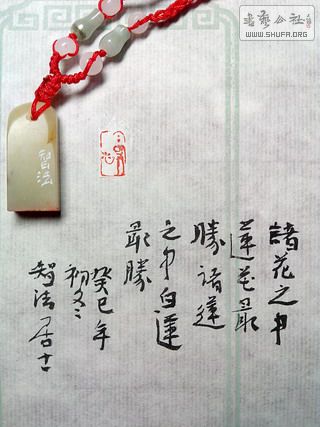 諸花之中
蓮花最
勝諸蓮
之中白蓮
最勝
癸巳年
初冬
智法居士
智法
書藝公社
WWW.SHUFA.ORG